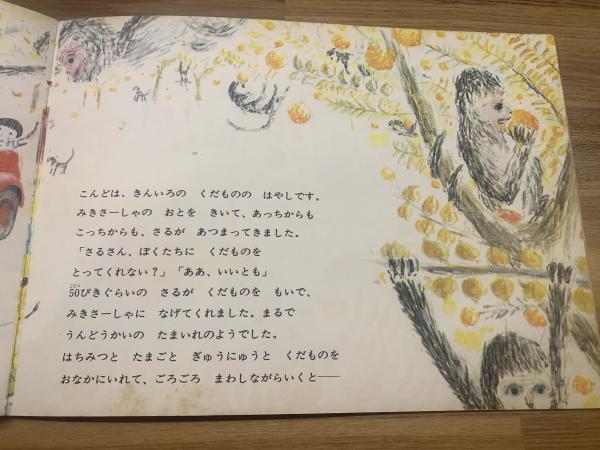 こんどは、きんいろの　くだものの　はやしです。
みきさーしゃの　おとを　きいて、あっちからも
こっちからも、さるが　あつまってきました。
「さるさん、ぼくたちに　くだものを
とってくれない？」「ああ、いいとも」
50ぴきぐらいの　さるが　くだものを　もいで、
みきさーしゃに　なげてくれました。まるで
うんどうかいの　たまいれのようでした。
はちみつと　たまごと　ぎゅうにゅうと　くだものを
おなかにいれて、ごろごろ　まわしながらいくと――